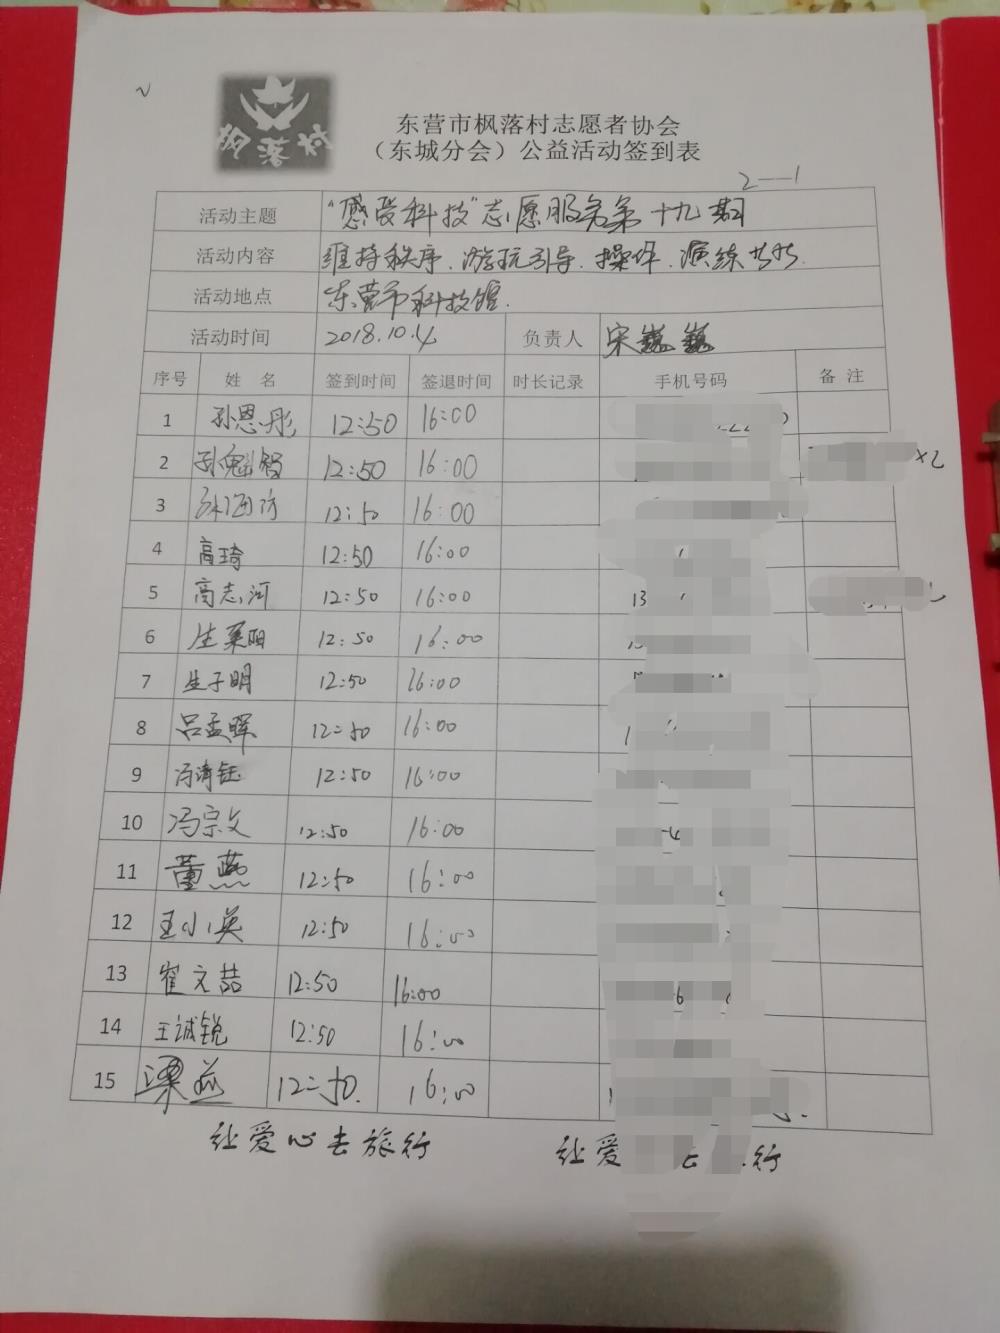 枫落村
东营市枫落村志愿者协会
（东城分会）公益活动签到表
2—1
活动主题 “感受科技”志愿服务第十九期
活动内容 维持秩序、游玩引导、操作、演练等
活动地点 东营市科技馆.
活动时间 2018.10.4 负责人 宋巍巍
序号 姓 名 签到时间 签退时间 时长记录 手机号码 备 注
1 孙恩彤 12:50 16:00
2 孙魁智 12:50 16:00 ×2
3 12:50 16:00
4 高琦 12:50 16:00
5 高志河 12:50 16:00 13
6 生 阳 12:50 16:00
7 生子明 12:50 16:00
8 吕孟晖 12:50 16:00
9 冯清钰 12:50 16:00
10 冯宗文 12:50 16:00
11 董燕 12:50 16:00
12 王小英 12:50 16:00
13 崔文喆 12:50 16:00
14 王诚锐 12:50 16:00
15 梁益 12:50. 16:00
让爱心去旅行 让爱 去 行